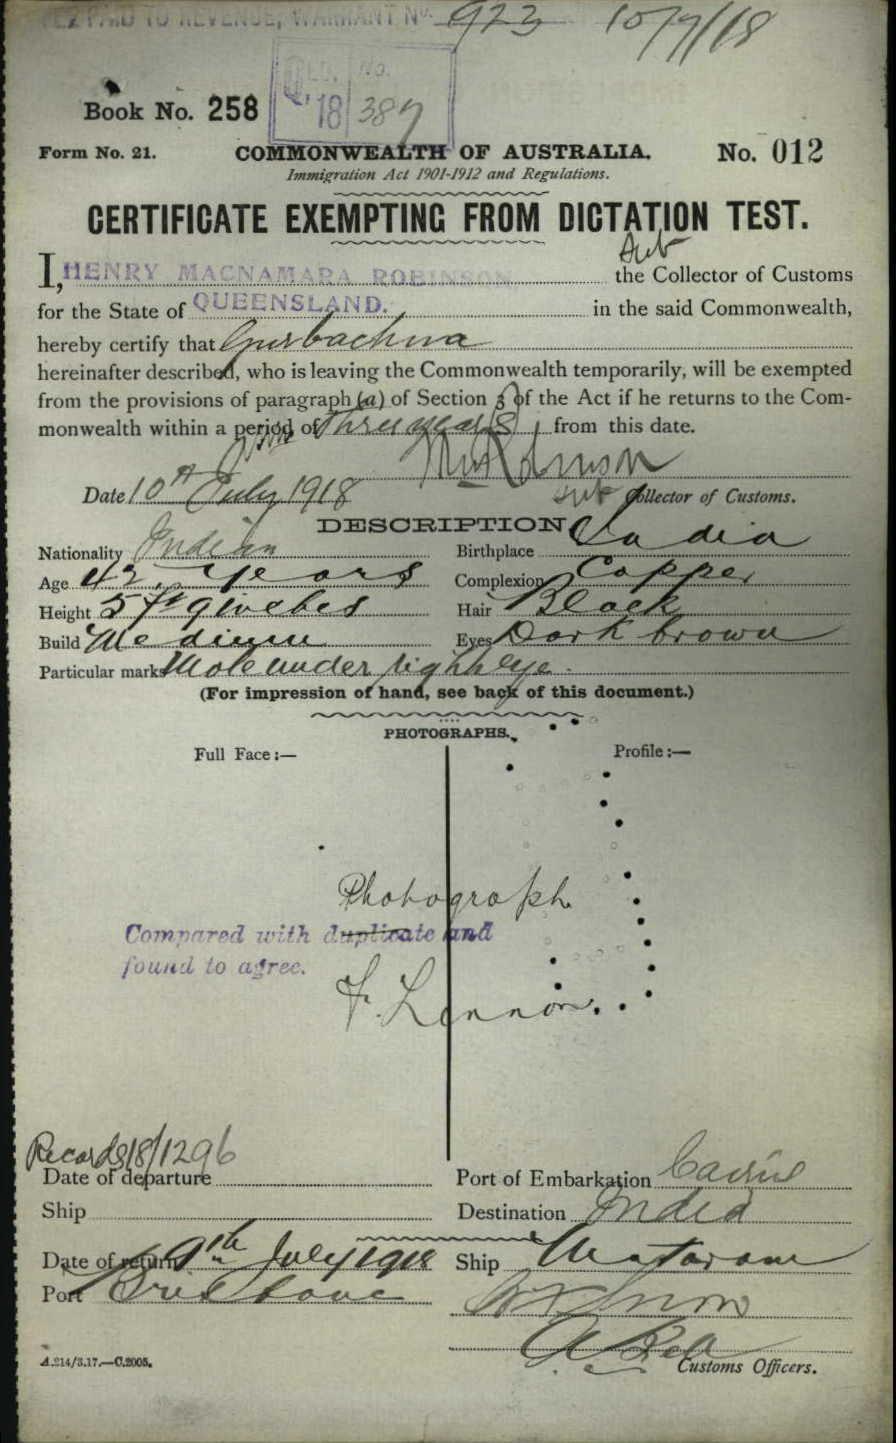 FEE PAID TO REVENUE, WARRANT No. 923 10/7/18
Book No. 258
18/387
Form No. 21. COMMONWEALTH OF AUSTRALIA. No. 012
Immigration Act 1901-1912 and Regulations.
CERTIFICATE EXEMPTING FROM DICTATION TEST.
Sub
I, HENRY MACNAMARA ROBINSON the Collector of Customs
for the State of QUEENSLAND. in the said Commonwealth,
hereby certify that Gurbachna
hereinafter described, who is leaving the Commonwealth temporarily, will be exempted
from the provisions of paragraph (a) of Section 3 of the Act if he returns to the Com-
monwealth within a period of Three years from this date.
Date 10th July 1918 Sub Collector of Customs.
DESCRIPTION
Nationality Indian Birthplace India
Age 42 years Complexion Copper
Height 5 ft 9 inches Hair Black
Build Medium Eyes Dark brown
Particular marks Mole under right eye.
(For impression of hand, see back of this document.)
PHOTOGRAPHS.
Full Face :— Profile :—
Photograph
Compared with duplicate and
found to agree.
F. Lennon.
Records 18/1296
Date of departure Port of Embarkation Cairns
Ship Destination India
Date of return 9th July 1918 Ship Mataram
Port Brisbane
Customs Officers.
A.214/3.17.—C.2005.